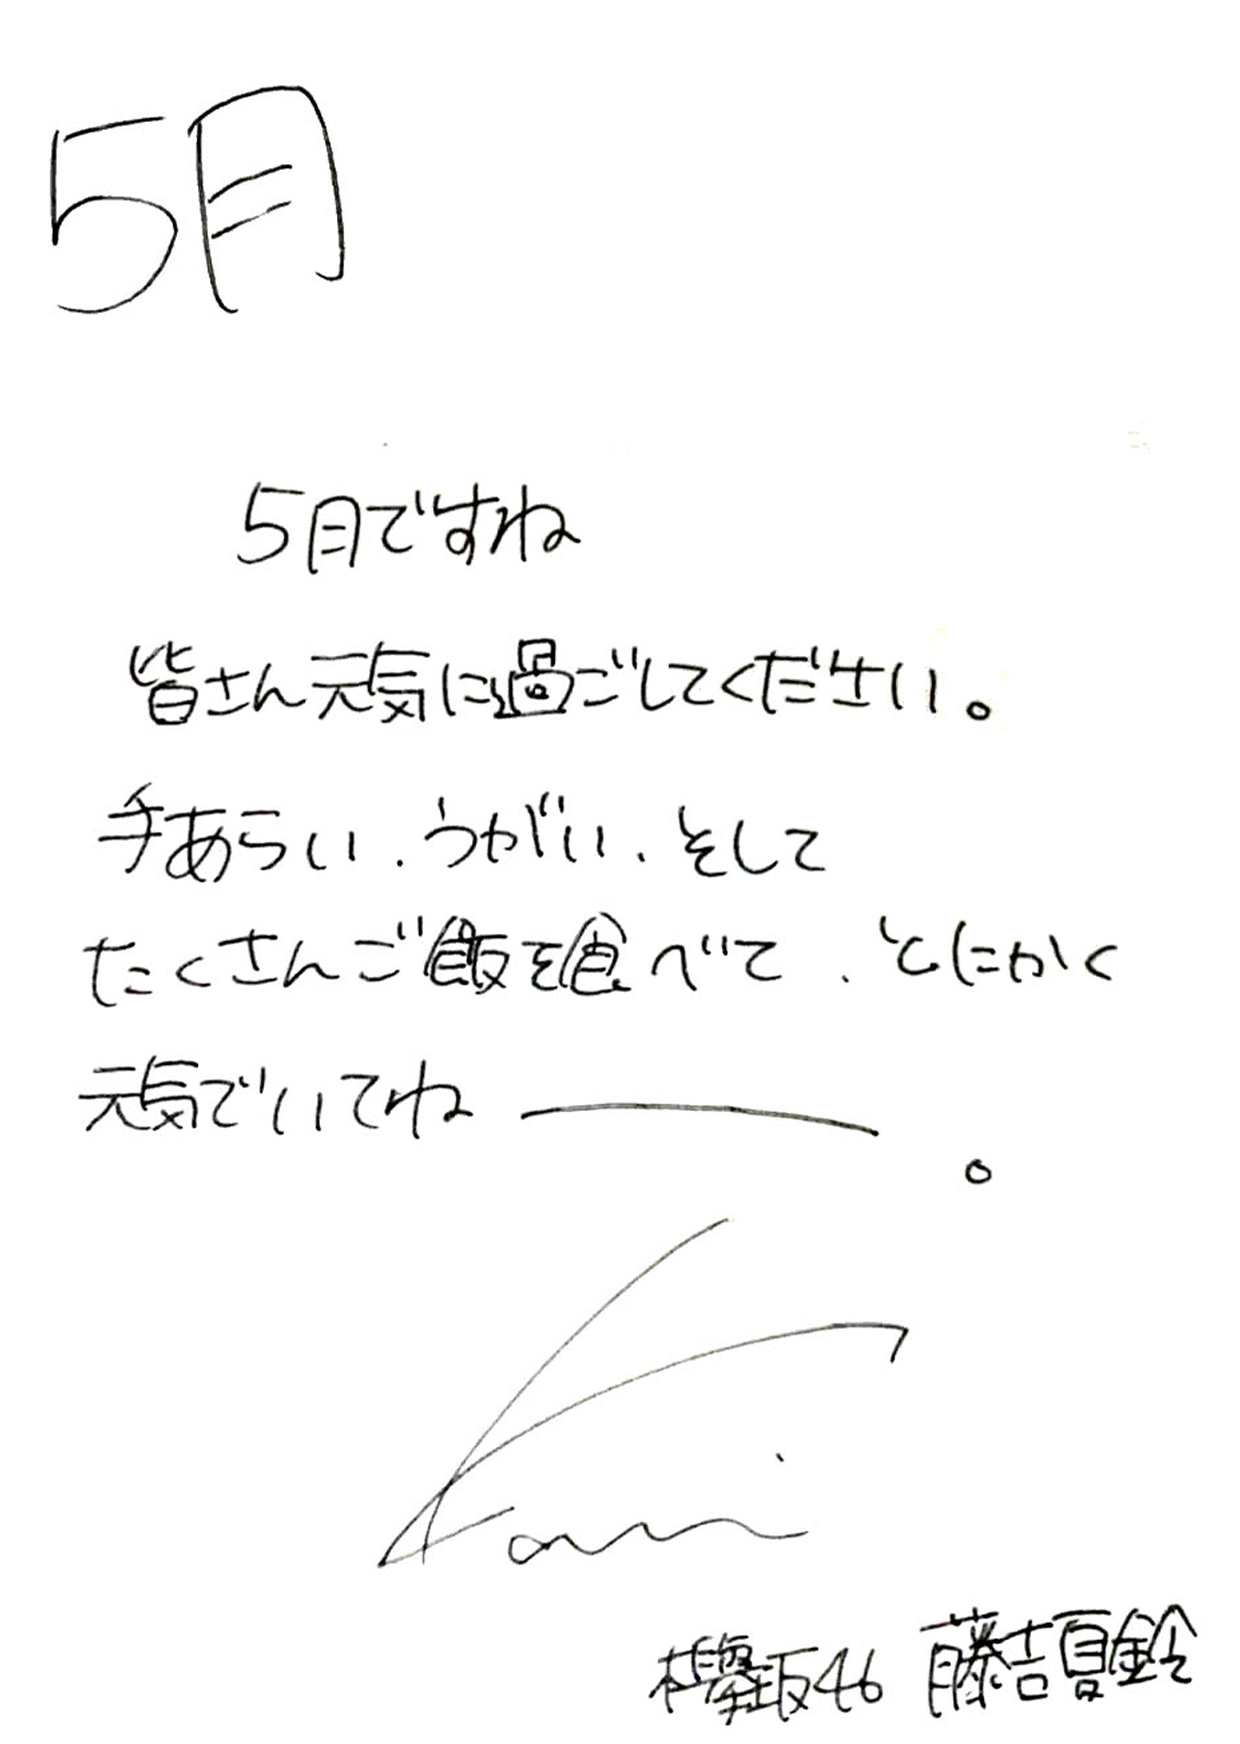 5月
5月ですね
皆さん元気に過ごしてください。
手あらい、うがい、そして
たくさんご飯を食べて、とにかく
元気でいてね――。
Karin
欅坂46 藤吉夏鈴